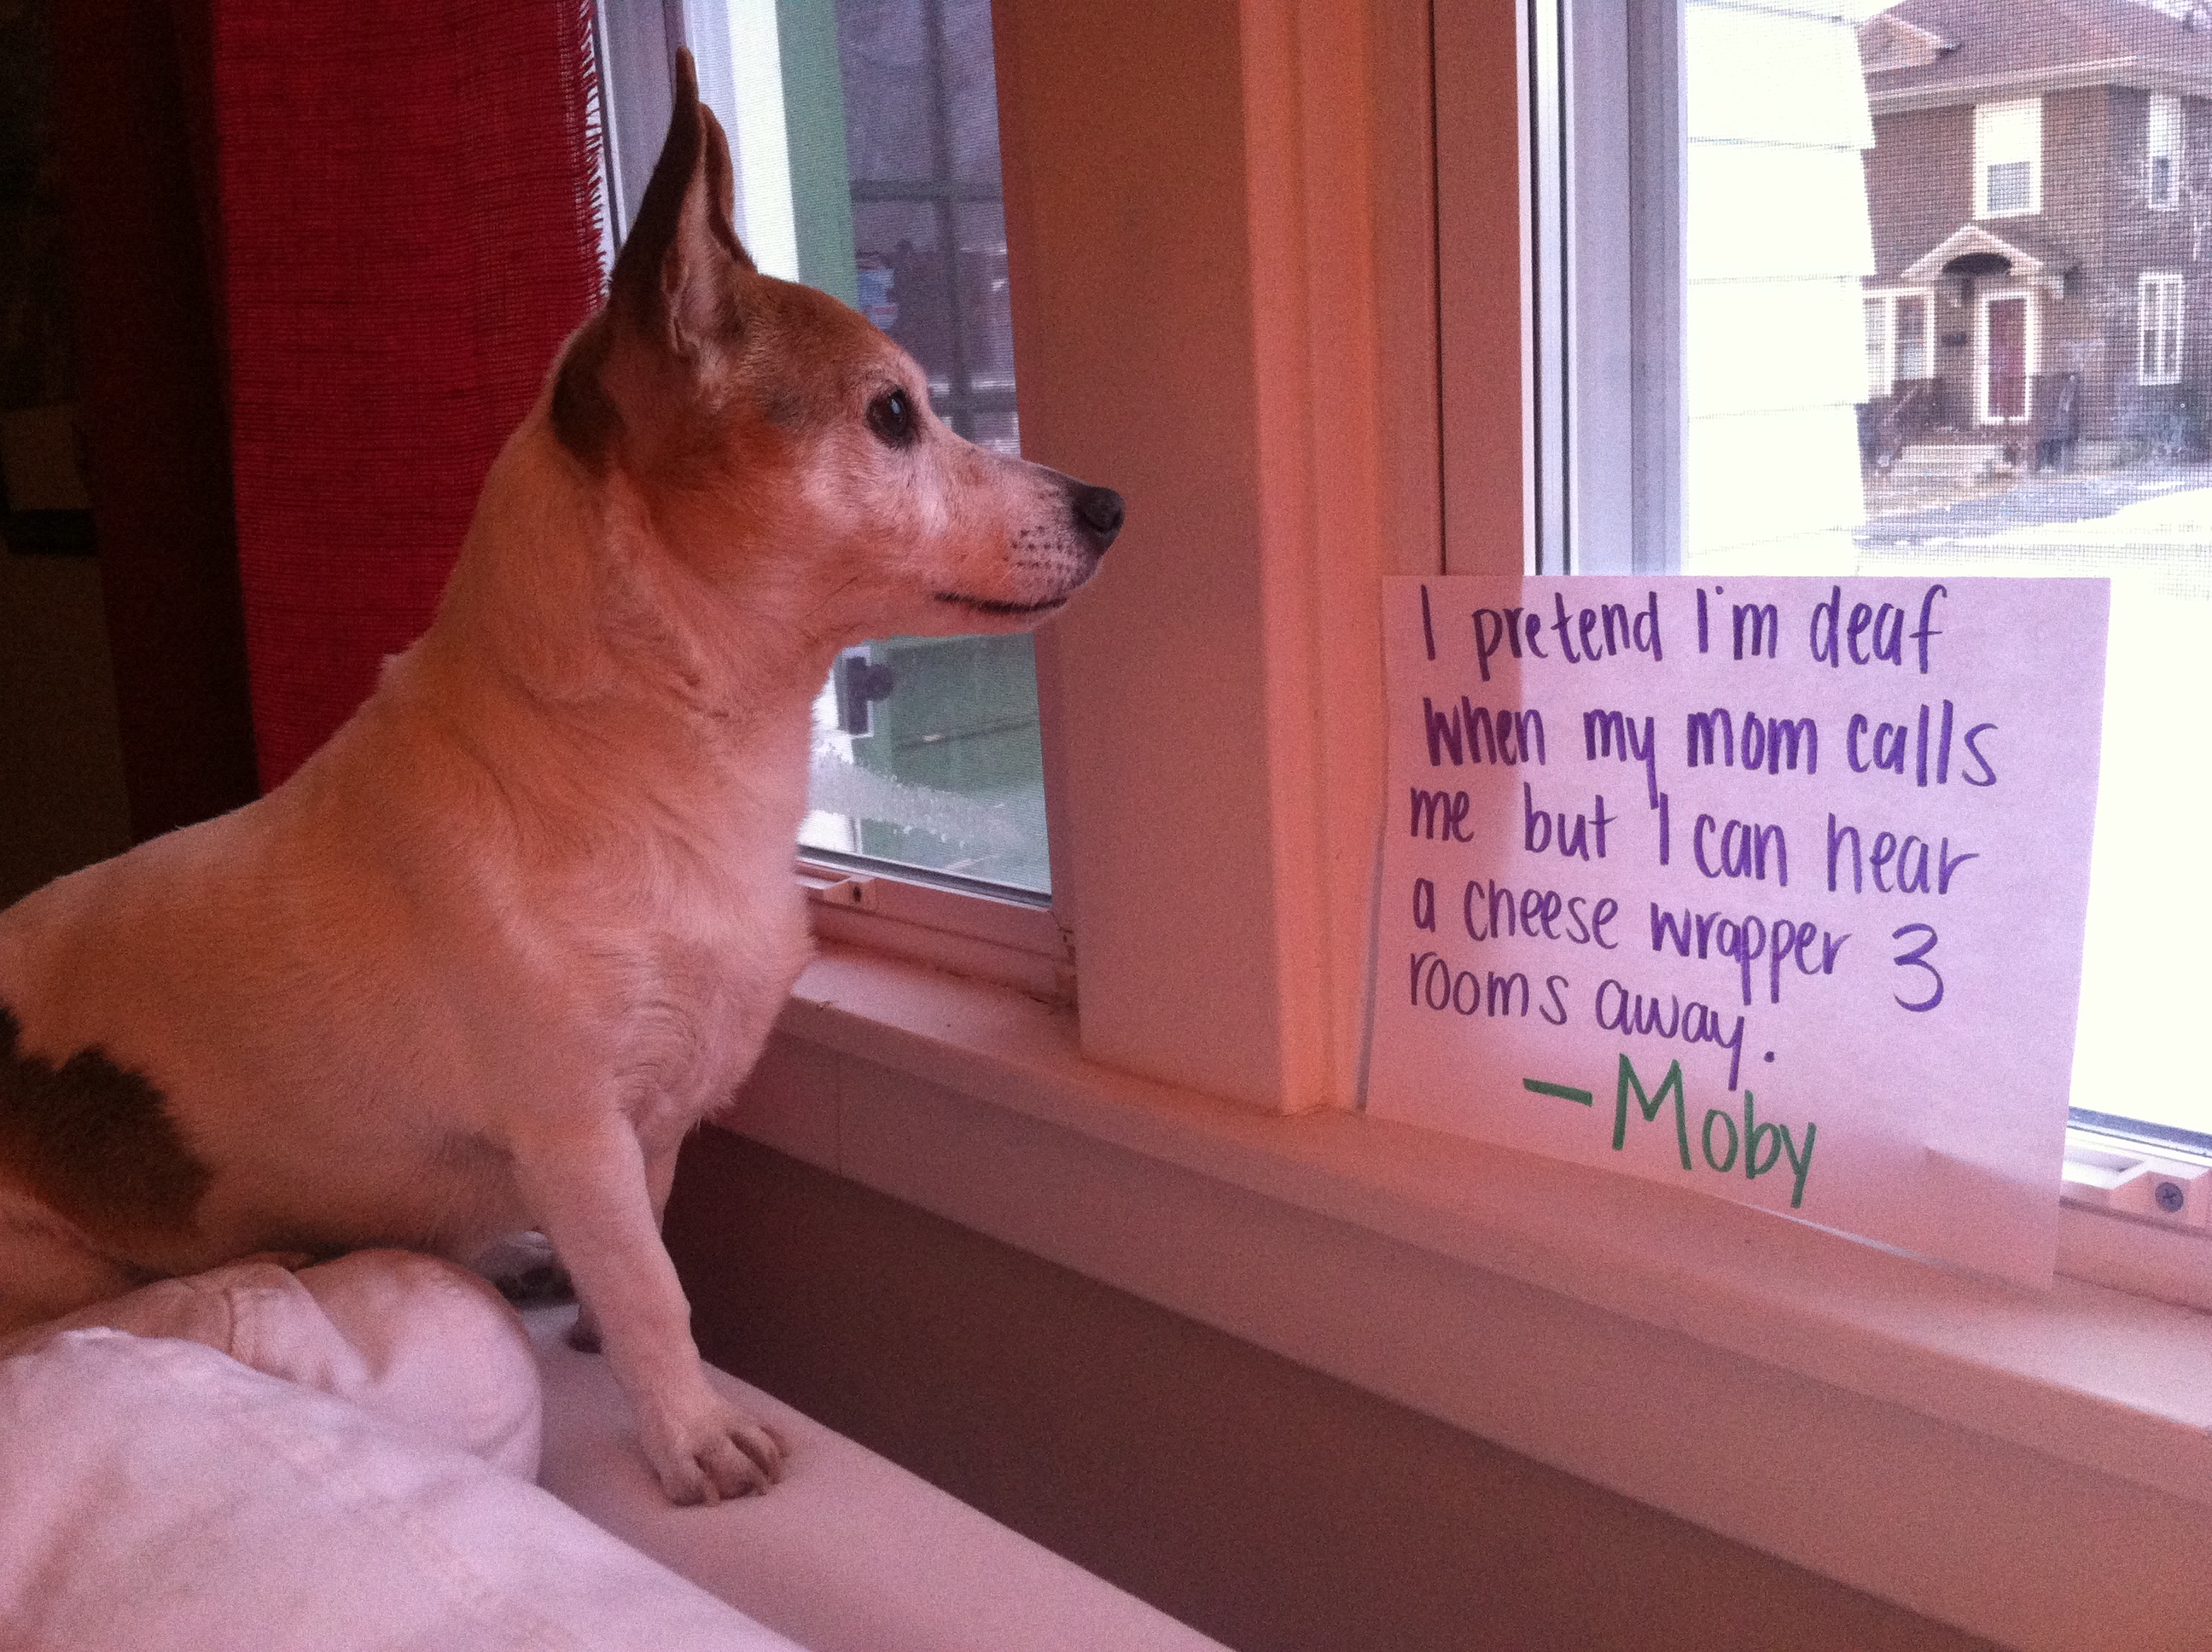 I pretend I'm deaf
when my mom calls
me but I can hear
a cheese wrapper 3
rooms away.
- Moby